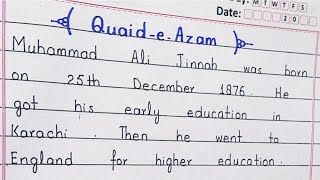 Day: M T W T F S
Date: 20
Quaid-e-Azam
Muhammad Ali Jinnah was born
on 25th December 1876. He
got his early education in
Karachi. Then he went to
England for higher education.